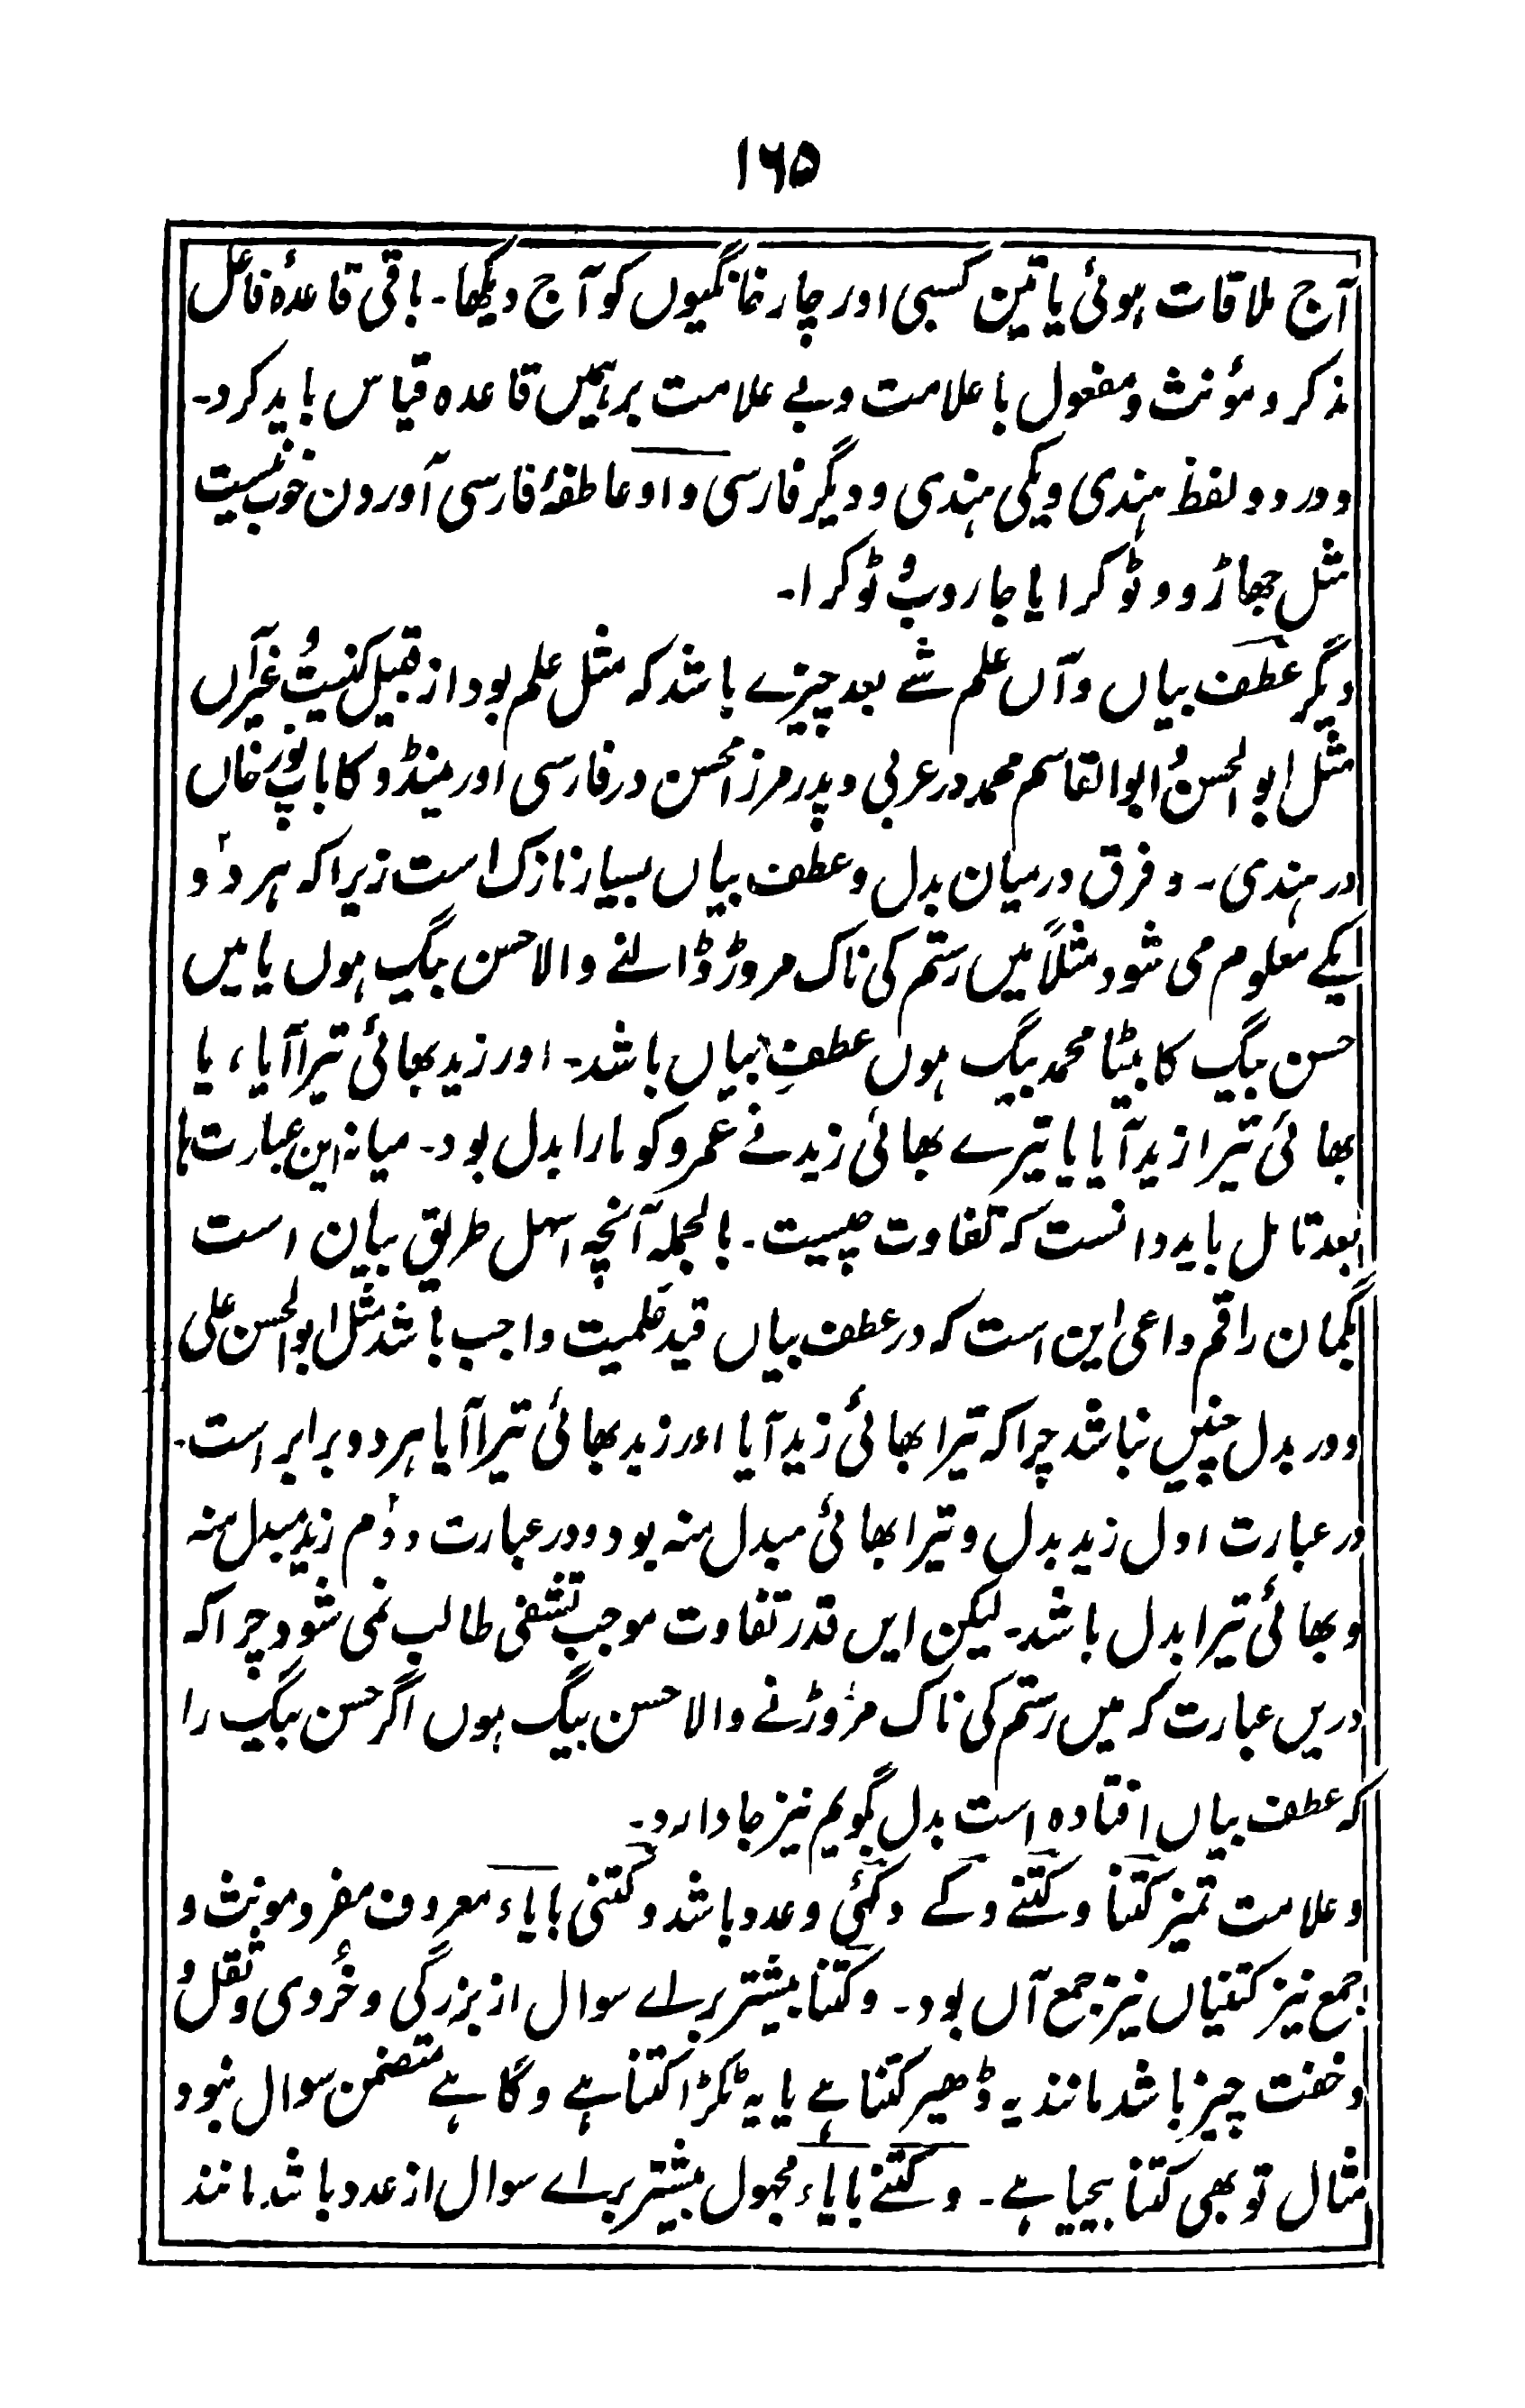 ۱۶۵
آج ملاقات ہوئی یا تین کسبی اور چار خانگیوں کو آج دیکھا۔ باقی قاعدۂ فاعل
مذکر و مؤنث و مفعول با علامت و بے علامت بر ہمیں قاعدہ قیاس باید کرد۔
و در دو لفظ ہندی و یکی ہندی و دیگر فارسی واو عاطفۂ فارسی آوردن خوب نیست
مثل جھاڑو و ٹوکرا یا جاروب و ٹوکرا۔
دیگر عطف بیاں و آں علم شے بعد چیزے باشد کہ مثل علم بود از قبیل کنیت و غیر آں
مثل ابو الحسن و ابو القاسم محمد در عربی و پدر مرزا محسن در فارسی اور مینڈو کا باپ نور خاں
در ہندی۔ و فرق درمیان بدل و عطف بیاں بسیار نازک است زیرا کہ ہر دو
یکے معلوم می شود مثلاً میں رستم کی ناک مروڑ ڈالنے والا حسن بیگ ہوں یا میں
حسن بیگ کا بیٹا محمد بیگ ہوں عطفِ بیاں باشد۔ اور زید بھائی تیرا آیا، یا
بھائی تیرا زید آیا یا تیرے بھائی زید نے عمرو کو مارا بدل بود۔ میانہ این عبارت ہا
بعد تامل باید دانست کہ تفاوت چیست۔ بالجملہ آنچہ اسہل طریق بیان است
بگمان راقم داعی این است کہ در عطف بیاں قید علمیت واجب باشد مثل ابو الحسن علی
و در بدل چنیں نباشد چرا کہ تیرا بھائی زید آیا اور زید بھائی تیرا آیا ہر دو برابر است۔
در عبارت اول زید بدل و تیرا بھائی مبدل منہ بود و در عبارت دوٗم زید مبدل منہ
و بھائی تیرا بدل باشد۔ لیکن ایں قدر تفاوت موجب تشفی طالب نمی شود چرا کہ
دریں عبارت کہ میں رستم کی ناک مروڑنے والا حسن بیگ ہوں اگر حسن بیگ را
کہ عطف بیاں افتادہ است بدل گویم نیز جا دارد۔
و علامت تمیز کتنا و کتنے و کے و کئی و عدد باشد و کتنی بایاء معروف مفرد مونث و
جمع نیز کتنیاں نیز جمع آں بود۔ و کتنا بیشتر براے سوال از بزرگی و خُردی و ثقل و
و خفت چیز باشد مانند یہ ڈھیر کتنا ہے یا یہ ٹکڑا کتنا ہے و گاہے متضمن سوال نبود
مثال تو بھی کتنا بیحیا ہے۔ و کتنے بایاء مجہول بیشتر براے سوال از عدد باشد مانند